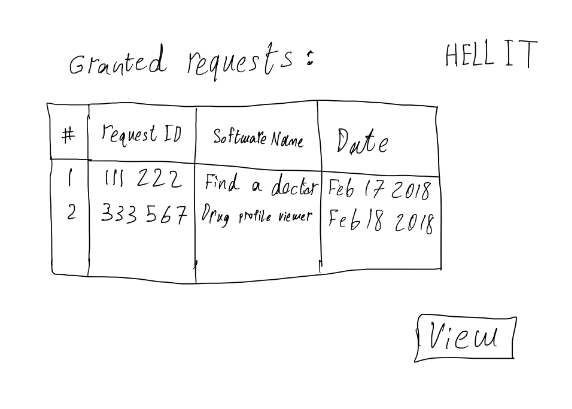 Granted requests:
HELL IT
# request ID Software Name Date
1 111 222 Find a doctor Feb 17 2018
2 333 567 Drug profile viewer Feb 18 2018
View